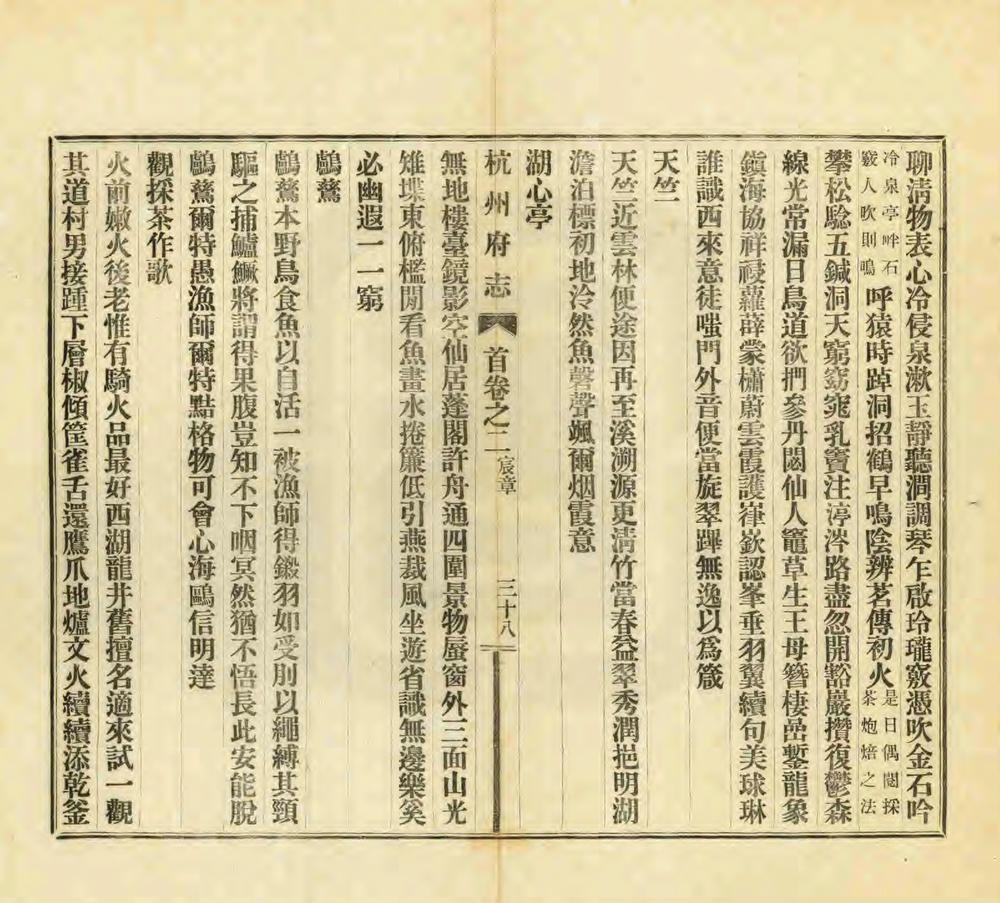 聊淸物表心冷侵泉漱玉靜聽澗調琴乍啟玲瓏竅憑吹金石吟
冷泉亭畔石
竅人吹則鳴
呼猿時踔洞招鶴早鳴陰辨茗傳初火
是日偶閱採
茶炮焙之法
攀松騐五鍼洞天窮窈窕乳竇注渟涔路盡忽開豁巖攢復鬱森
線光常漏日鳥道欲捫參丹閟仙人竈草生王母簪棲嵒鏨龍象
鎭海協祥祲蘿薜蒙櫹蔚雲霞護嵂嶔認峯垂羽翼續句美球琳
誰識西來意徒嗤門外音便當旋翠蹕無逸以爲箴
天竺
天竺近雲林便途因再至溪溯源更淸竹當春益翠秀潤挹明湖
澹泊標初地泠然魚磬聲颯爾烟霞意
湖心亭
杭州府志
首卷之二
宸章
三十八
無地樓臺鏡影空仙居蓬閣許舟通四圍景物蜃窗外三面山光
雉堞東俯檻閒看魚畫水捲簾低引燕裁風坐遊省識無邊樂奚
必幽遐一一窮
鸕鶿
鸕鶿本野鳥食魚以自活一被漁師得鎩羽如受刖以繩縛其頸
驅之捕鱸鱖將謂得果腹豈知不下咽冥然猶不悟長此安能脫
鸕鶿爾特愚漁師爾特點格物可會心海鷗信明達
觀採茶作歌
火前嫩火後老惟有騎火品最好西湖龍井舊擅名適來試一觀
其道村男接踵下層椒傾筐雀舌還鷹爪地爐文火續續添乾釜